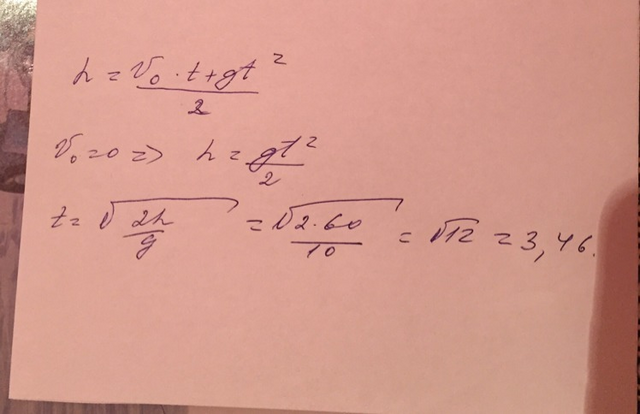 h = V₀ · t + gt² / 2
V₀ = 0 => h = gt² / 2
t = √(2h / g) = √(2 · 60 / 10) = √12 = 3,46.